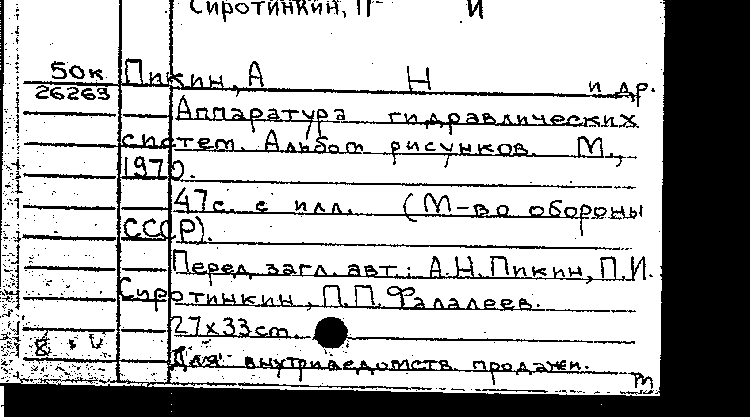 Сиротинкин, П И
50к Пикин, А Н и др.
26263
Аппаратура гидравлических
систем. Альбом рисунков. М.,
1970.
47с. с илл. (М-во обороны
СССР).
Перед загл. авт.: А.Н. Пикин, П.И.
Сиротинкин, П.П. Фалалеев.
27х33cm.
Для внутриведомств. продажи.
m